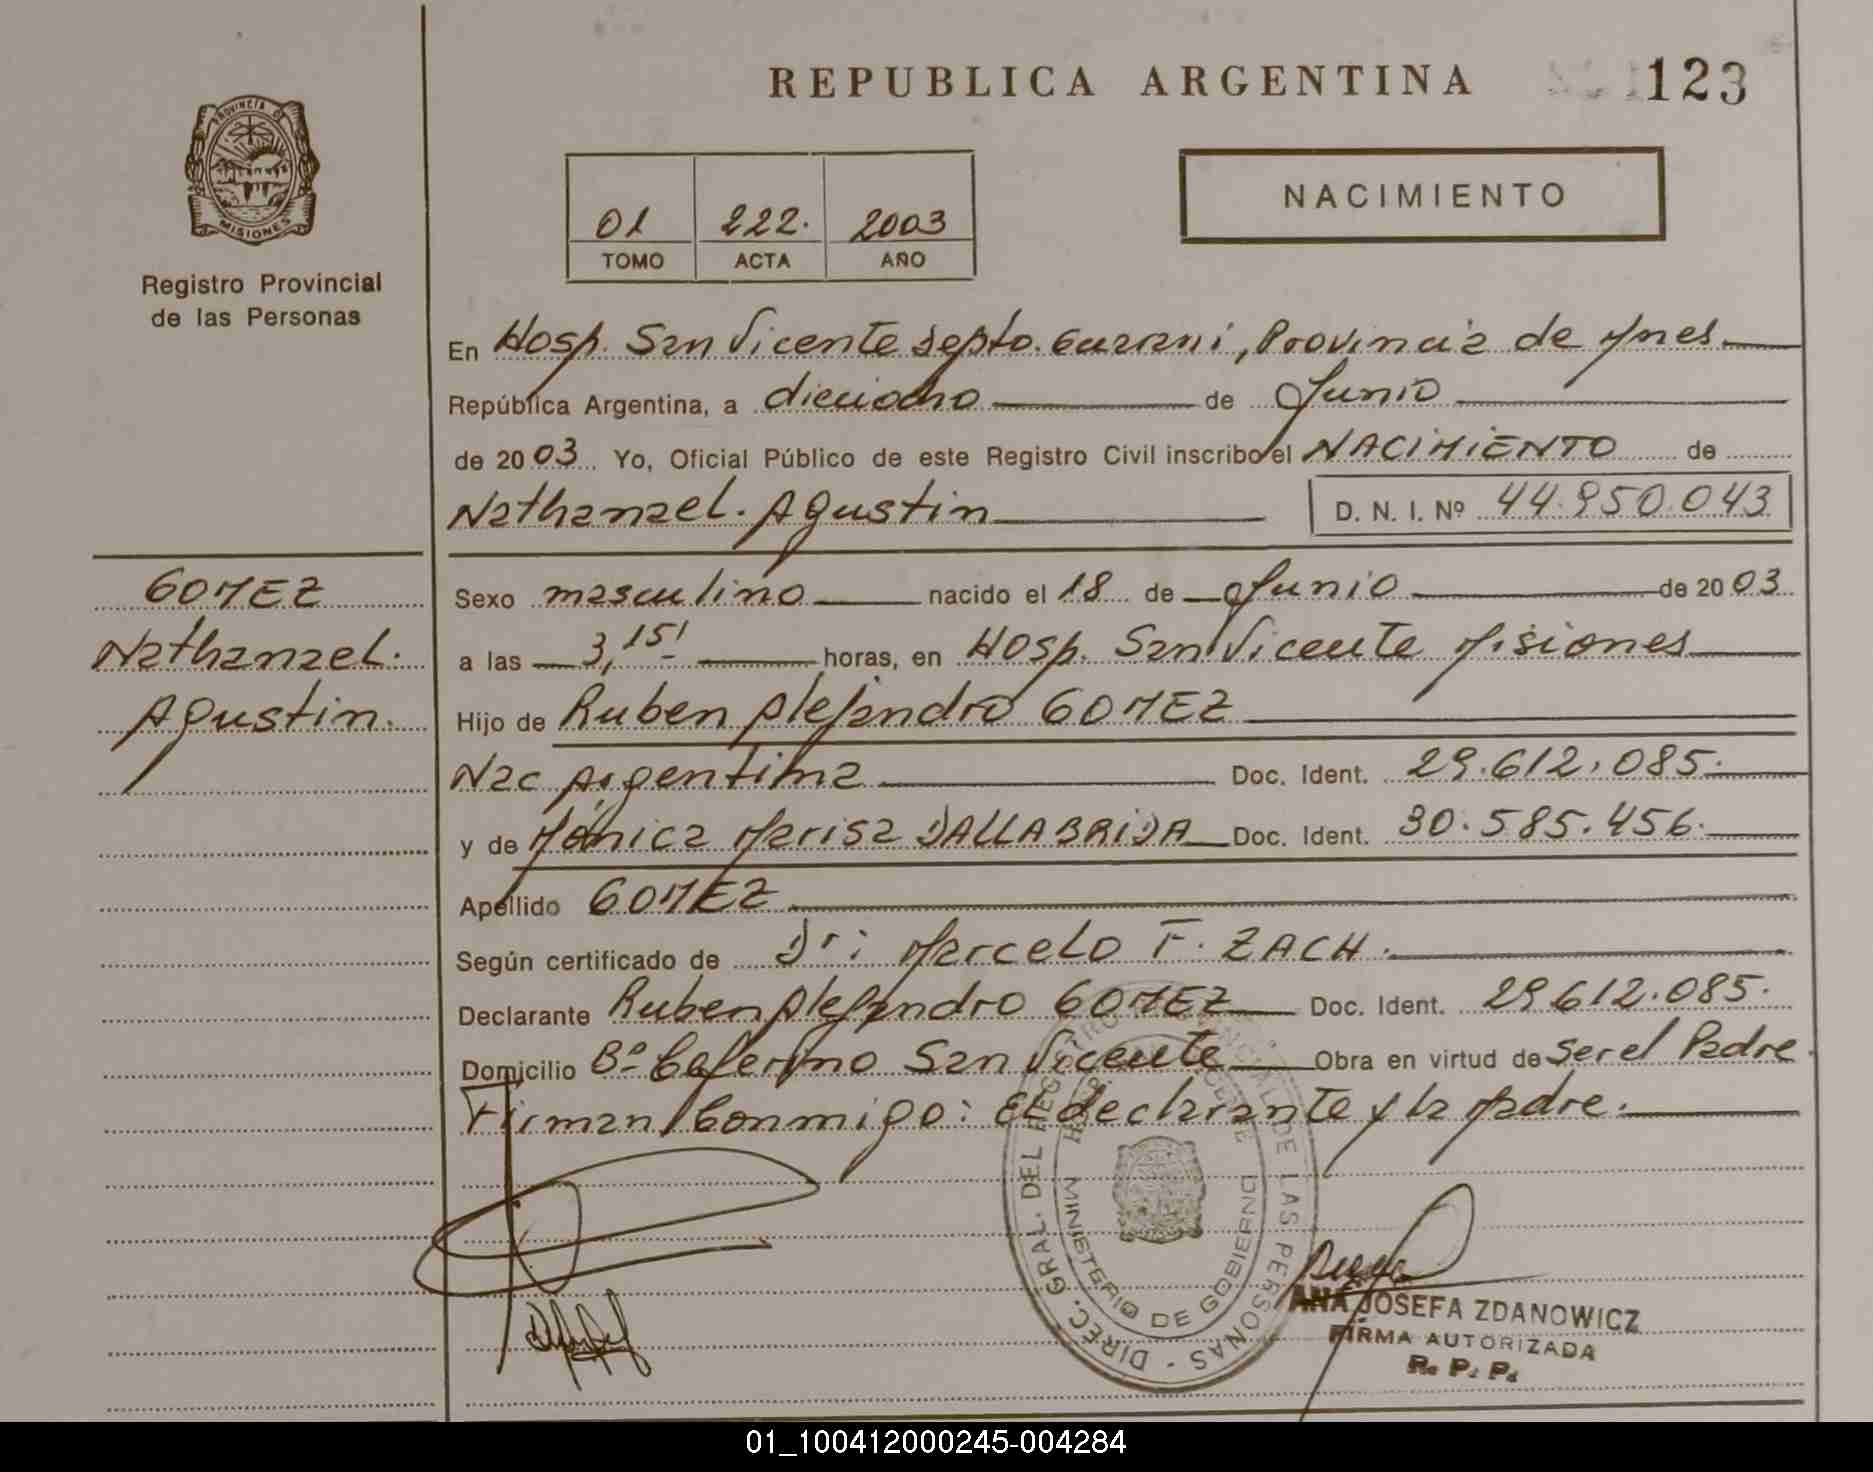 REPUBLICA ARGENTINA
123
PROVINCIA DE
MISIONES
Registro Provincial
de las Personas
01 222. 2003
TOMO ACTA AÑO
NACIMIENTO
En Hosp. San Vicente Depto. Guarani, Provincia de Mnes.
República Argentina, a dieciocho de Junio
de 2003 Yo, Oficial Público de este Registro Civil inscribo el NACIMIENTO de
Nathanael. Agustin D. N. I. Nº 44.950.043
GOMEZ
Nathanael.
Agustin.
Sexo masculino nacido el 18 de Junio de 2003
a las 3,15' horas, en Hosp. San Vicente Misiones
Hijo de Ruben Alejandro GOMEZ
Nac Argentina Doc. Ident. 29.612.085.
y de Mónica Marisa DALLABRIDA Doc. Ident. 30.585.456.
Apellido GOMEZ
Según certificado de Dr: Marcelo F. ZACH.
Declarante Ruben Alejandro GOMEZ Doc. Ident. 29.612.085.
Domicilio Bº Ceferino San Vicente Obra en virtud de ser el Padre.
Firman Conmigo: El declarante y la Madre.
DIREC. GRAL. DEL REGISTRO PROVINCIAL DE LAS PERSONAS
MINISTERIO DE GOBIERNO
ANA JOSEFA ZDANOWICZ
FIRMA AUTORIZADA
R. P. P.
01_100412000245-004284